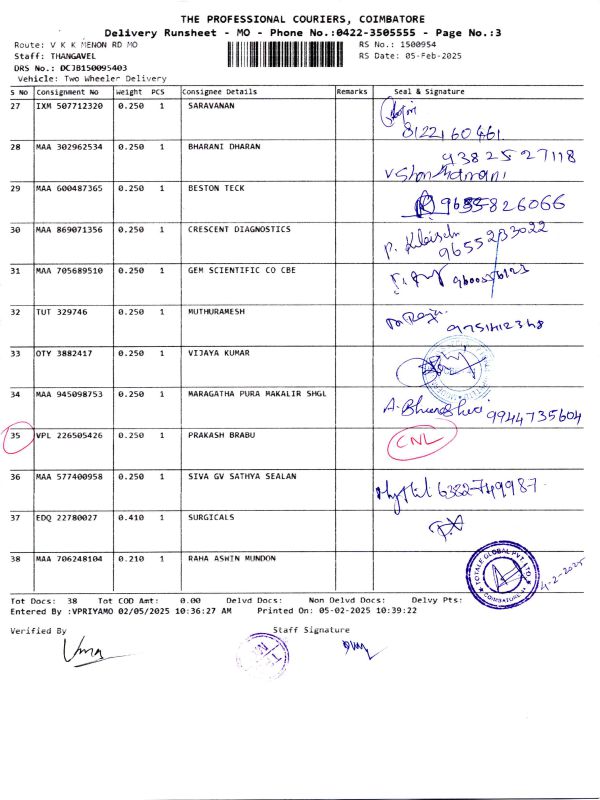 THE PROFESSIONAL COURIERS, COIMBATORE
Delivery Runsheet - MO - Phone No.:0422-3505555 - Page No.:3
Route: V K K MENON RD MO RS No.: 1500954
Staff: THANGAVEL RS Date: 05-Feb-2025
DRS No.: DCJB150095403
Vehicle: Two Wheeler Delivery
S No Consignment No Weight PCS Consignee Details Remarks Seal & Signature
27 IXM 507712320 0.250 1 SARAVANAN
8122160461
28 MAA 302962534 0.250 1 BHARANI DHARAN 9382527118
29 MAA 600487365 0.250 1 BESTON TECK
30 MAA 869071356 0.250 1 CRESCENT DIAGNOSTICS
9655233022
31 MAA 705689510 0.250 1 GEM SCIENTIFIC CO CBE
32 TUT 329746 0.250 1 MUTHURAMESH
33 OTY 3882417 0.250 1 VIJAYA KUMAR
34 MAA 945098753 0.250 1 MARAGATHA PURA MAKALIR SHGL
9944735604
35 VPL 226505426 0.250 1 PRAKASH BRABU CNL
36 MAA 577400958 0.250 1 SIVA GV SATHYA SEALAN
6382749987
37 EDQ 22780027 0.410 1 SURGICALS
38 MAA 706248104 0.210 1 RAHA ASWIN MUNDON
TOTALE GLOBAL PVT LTD
COIMBATORE
4-2-2025
Tot Docs: 38 Tot COD Amt: 0.00 Delvd Docs: Non Delvd Docs: Delvy Pts:
Entered By :VPRIYAMO 02/05/2025 10:36:27 AM Printed On: 05-02-2025 10:39:22
Verified By Staff Signature
Uma